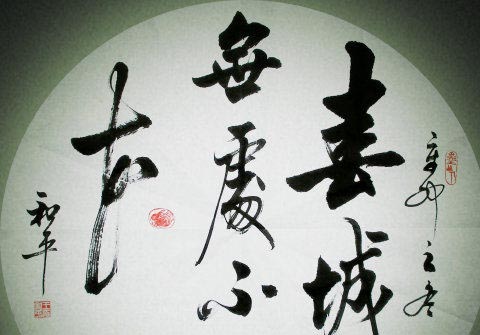 辛卯之冬
春城
無處不
花
和平